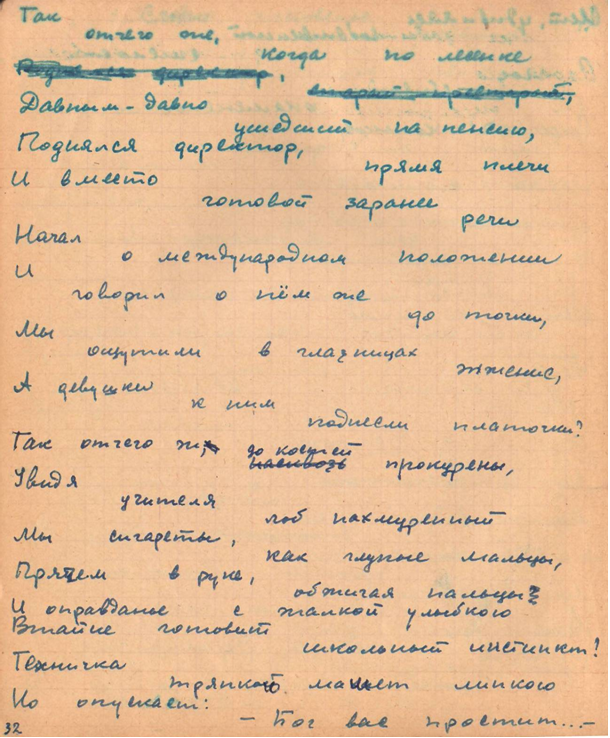 Так
отчего же, когда по лесенке
Давным-давно
ушедший на пенсию,
Поднялся директор,
прямя плечи
И вместо
готовой заранее
речи
Начал
о международном положении
И
говорил о нём же
до точки,
Мы
ощутили в глазницах
жжение,
А девушки
к ним
поднесли платочки?
Так отчего ж, до костей
насквозь прокурены,
Увидя
учителя
лоб нахмуренный
Мы сигареты,
как глупые мальцы,
Прячем в руке,
обжигая пальцы?
И оправданье с жалкой улыбкою
Втайне готовит
школьный инстинкт!
Техничка
тряпкою машет липкою
Но опускает:
– Бог вас простит...–
32